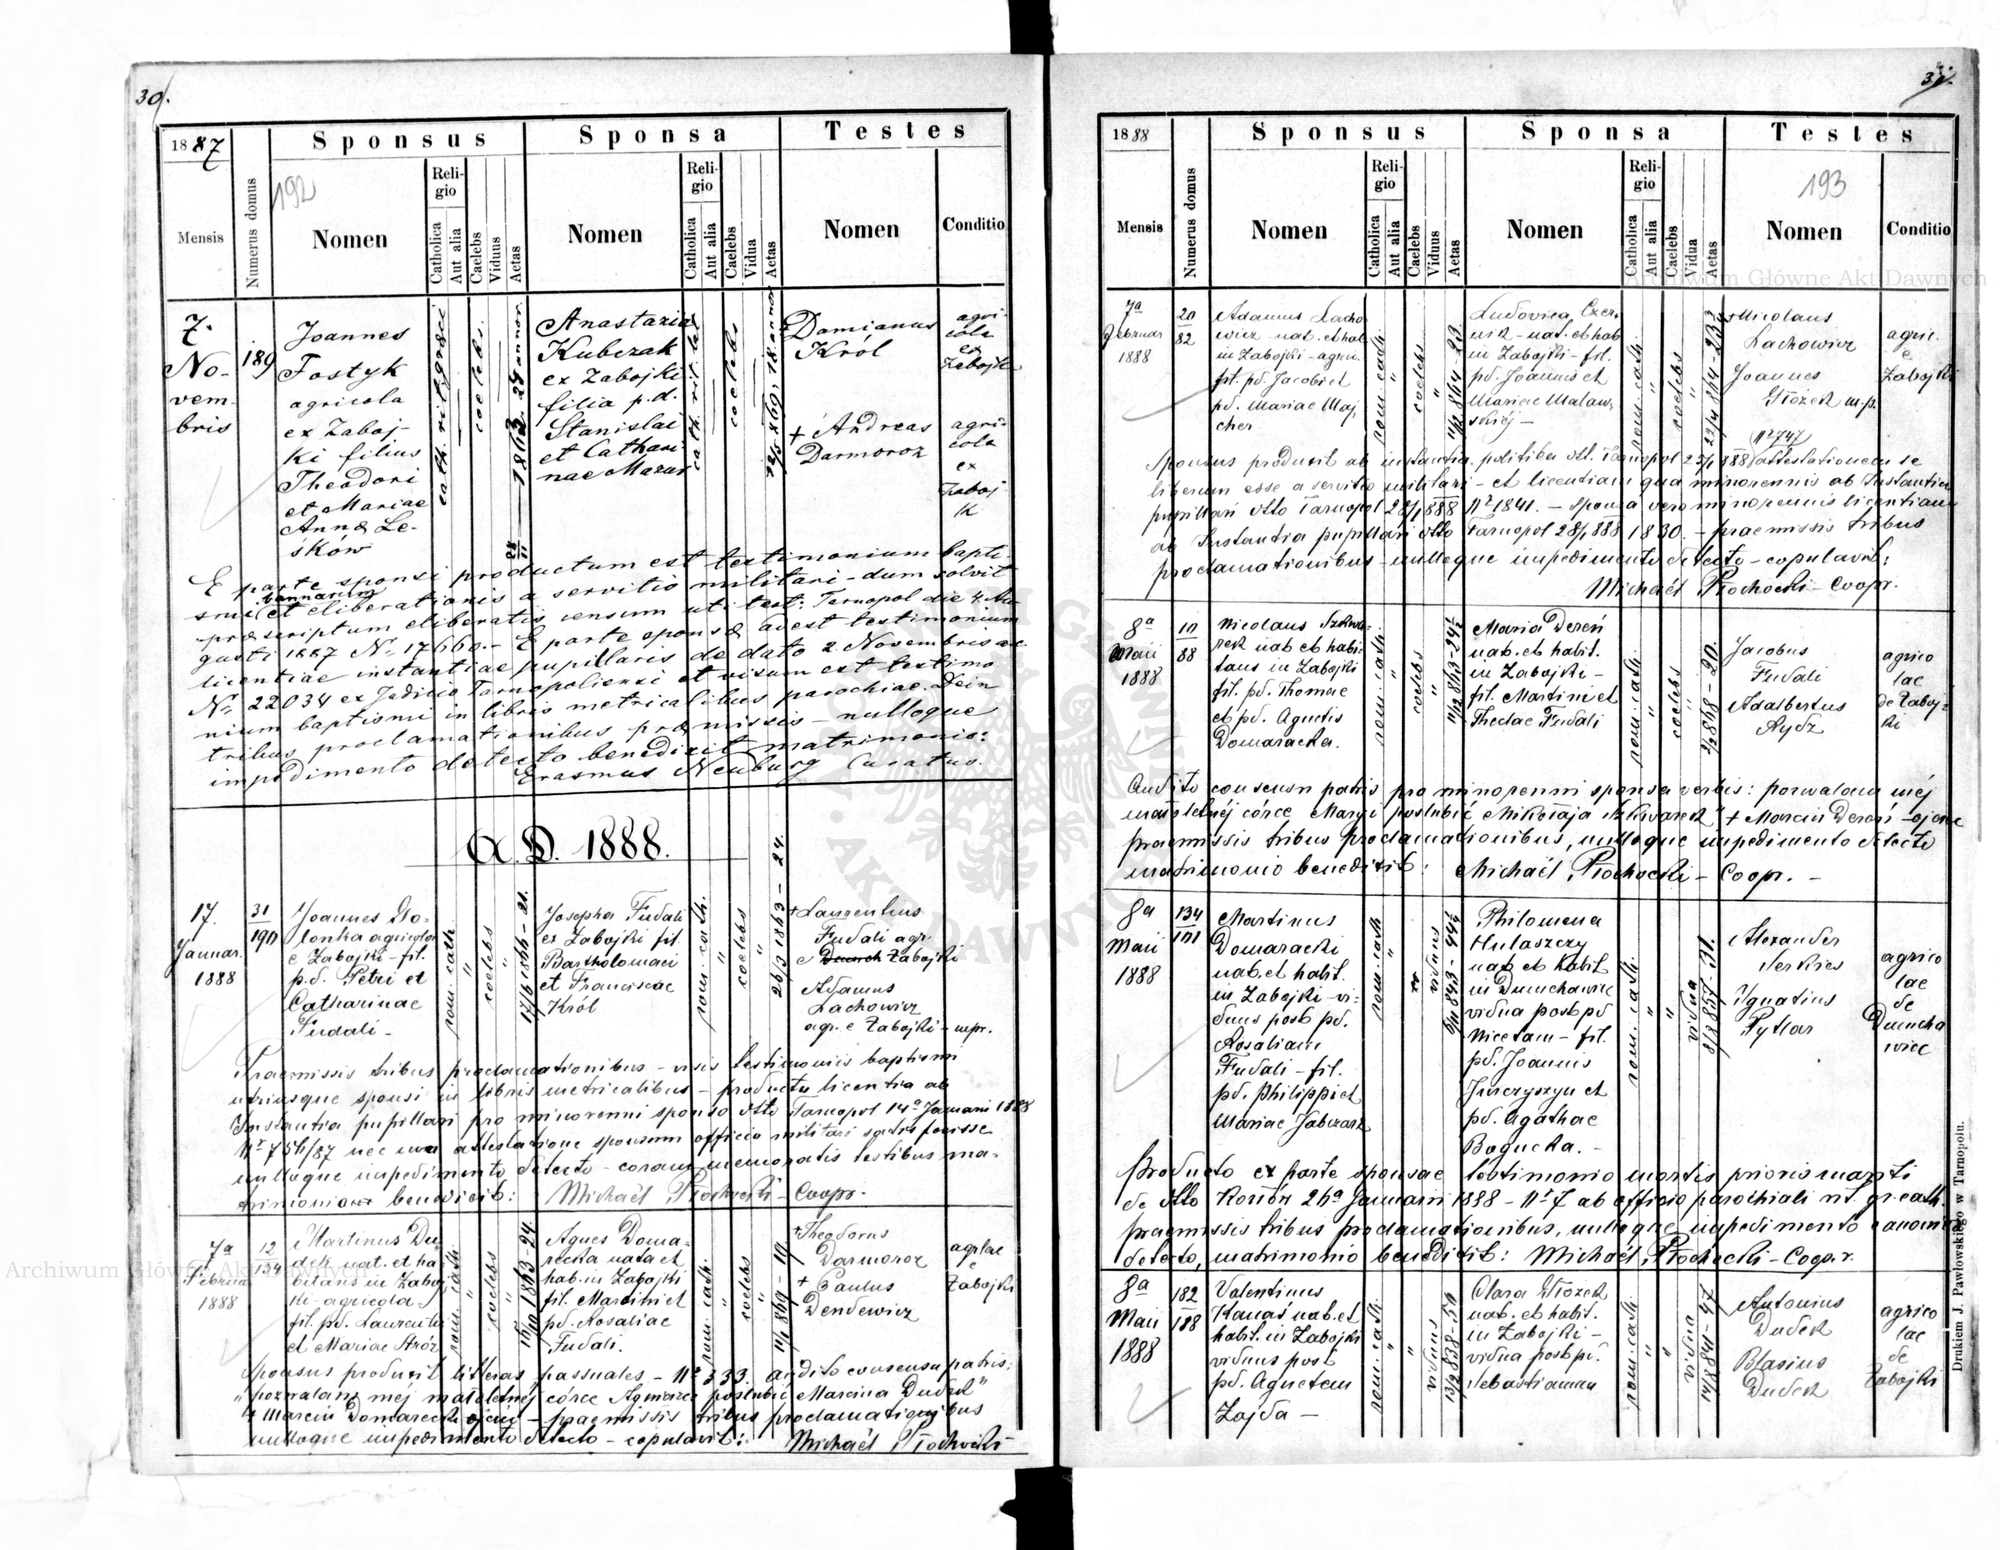 30.
1887
Mensis
Numerus domus
Sponsus
192
Nomen
Religio
Catholica
Aut alia
Caelebs
Viduus
Aetas
Sponsa
Nomen
Religio
Catholica
Aut alia
Caelebs
Vidua
Aetas
Testes
Nomen
Conditio
7.
No-
vem-
bris
189
Joannes
Fostyk
agricola
ex Zaboj-
ki filius
Theodori
et Mariae
Annae Le-
śków
coelebs.
Anastazia
Kubczak
ex Zabojki
filia p.d.
Stanislai
et Cathari
nae Mazur
coelebs
Damianus
Król
agri-
cola
ex
Zabojk
+ Andreas
Darmoroz
agri-
cola
ex
Zaboj
k
E parte sponsi productum est testimonium bapti-
smi et bannorum eliberationis a servitio militari - dum solvit
praescriptum eliberatis censum uti test: Tarnopol die 4 Au-
gusti 1887 Nr. 17660. - E parte sponsae adest testimonium
licentiae instantiae pupillaris de dato 2 Novembris ac
Nr. 22034 ex Judicio Tarnopoliensi et visum est testimo
nium baptismi in libris metricalibus parochiae. Dein
tribus proclamationibus praemissis - nulloque
impedimento detecto benedixit matrimonio:
Erasmus Neuburg Curatus.
A. D. 1888.
17.
Januar.
1888
31
190
Joannes Sło-
lonka agricola
e Zabojki - fil.
p.d. Petri et
Catharinae
Fudali -
rom. cath.
"
coelebs
"
17/6 1866 - 21.
Josepha Fudali
ex Zabojki fil.
Bartholomaei
et Franciscae
Król
rom. cath.
"
coelebs
"
26/3 1863 - 24.
+ Laurentius
Fudali agr.
e Zabojki
Adamus
Lachowicz
agr. e Zabojki - mpr.
Praemissis tribus proclamationibus - visis testimoniis baptismi
utriusque sponsi in libris metricalibus - producta licentia ab
Instantia pupillari pro minorenni sponso dtto Tarnopol 14a Januarii 1888
Nr 756/87 nec non attestatione sponsum officio militari satis fecisse
nulloque impedimento detecto - coram memoratis testibus ma-
trimonium benedixit: Michaël Płochocki - Coopr.
7a
Februar
1888
12
134
Martinus Du
dek nat. et ha
bitans in Zaboj
ki - agricola
fil. pd. Laurentii
et Mariae Stróż
rom. cath.
"
coelebs
"
1863 - 24.
Agnes Doma-
recka nata et
hab. in Zabojki
fil. Martini et
pd. Rosaliae
Fudali.
rom. cath.
"
coelebs
"
11/1 869 - 19.
+ Theodorus
Darmoroz
+ Paulus
Dendewicz
agrlae
e
Zabojki
Sponsus produxit litteras passuales - Nr 333. audito consensu patris:
"pozwalam mej małoletniej córce Agnieszce poślubić Marcina Dudek"
+ Marcin Domarecki ojciec - praemissis tribus proclamationibus
nulloque impedimento detecto - copulavit: Michaël Płochocki -
31.
1888
Mensis
Numerus domus
Sponsus
Nomen
Religio
Catholica
Aut alia
Caelebs
Viduus
Aetas
Sponsa
Nomen
Religio
Catholica
Aut alia
Caelebs
Vidua
Aetas
Testes
193
Nomen
Conditio
7a
Februar
1888
20
82
Adamus Lacho
wicz nat. et hab.
in Zabojki - agric.
fil. pd. Jacobi et
pd. Mariae Maj
cher
rom. cath.
"
coelebs
"
11/12 864 - 23
Ludovica Czer
nik - nat. et hab
in Zabojki - fil.
pd. Joannis et
Mariae Malaw-
skiéj -
rom. cath.
"
coelebs
"
+ Nicolaus
Lachowicz
Joannes
Słozek m.p.
agric.
e
Zabojki
Sponsus produxit ab instantia politica dtt. Tarnopol 25/1 888 (Nr 747) attestationem se
liberum esse a servitio militari - et licentiam qua minorennis ab Instantia
pupillari dtto Tarnopol 28/1 888 Nr 1841. - sponsa vero minorennis licentiam
ab Instantia pupillari dtto Tarnopol 28/1 888 1830. - praemissis tribus
proclamationibus - nulloque impedimento detecto - copulavit:
Michaël Płochocki - Coopr.
8a
Maii
1888
10
88
Nicolaus Szkwa-
rek nat. et habi
tans in Zabojki
fil. pd. Thomae
et pd. Agnetis
Domaracka.
rom. cath.
"
coelebs
"
11/12 863 - 24½
Maria Dereń
nat. et habit.
in Zabojki -
fil. Martini et
Theclae Fudali
rom. cath.
"
coelebs
"
2/2 868 - 20.
Jacobus
Fudali
Adalbertus
Rydz
agrico
lae
de Zaboj-
ki
Audito consensu patris pro minorenni sponsa verbis: pozwalam méj
małoletniéj córce Maryi poślubić Mikołaja Szkwarek" + Marcin Dereń - ojciec
praemissis tribus proclamationibus, nulloque impedimento detecto
matrimonio benedixit: Michaël Płochocki - Coopr. -
8a
Maii
1888
134
101
Martinus
Domaracki
nat. et habit.
in Zabojki - vi-
duus post pd.
Rosaliam
Fudali - fil.
pd. Philippi et
Mariae Jabczarz
rom. cath
"
viduus
843 - 44½
Philomena
Hulaszczy
nat et habit
in Dumchawice
vidua post pd
Nicetam - fil.
pd. Joannis
Jurczyszyn et
pd. Agathae
Bogucka. -
rom. cath.
"
vidua
8/2 857 - 31.
Alexander
Serkies
Ignatius
Pytlar
agrico
lae
de
Dumcha
wice
Producto ex parte sponsae testimonio mortis prioris mariti
de dtto 26a Januarii 1888 - Nr 7 ab officio parochiali rit. gr. cath.
praemissis tribus proclamationibus, nulloque impedimento canonico
detecto, matrimonio benedixit: Michaël Płochocki - Coopr.
8a
Maii
1888
182
188
Valentinus
Kanaś nat. et
habit. in Zabojki
viduus post
pd. Agnetem
Zajda -
rom. cath.
"
viduus
13/2 838 - 50
Clara Słozek
nat. et habit.
in Zabojki -
vidua post pd.
Sebastianum
rom. cath.
"
vidua
14/8 841 - 47
Antonius
Dudek
Blasius
Dudek
agrico
lae
de
Zabojki
Drukiem J. Pawłowskiego w Tarnopolu.
Archiwum Główne Akt Dawnych
Archiwum Główne Akt Dawnych